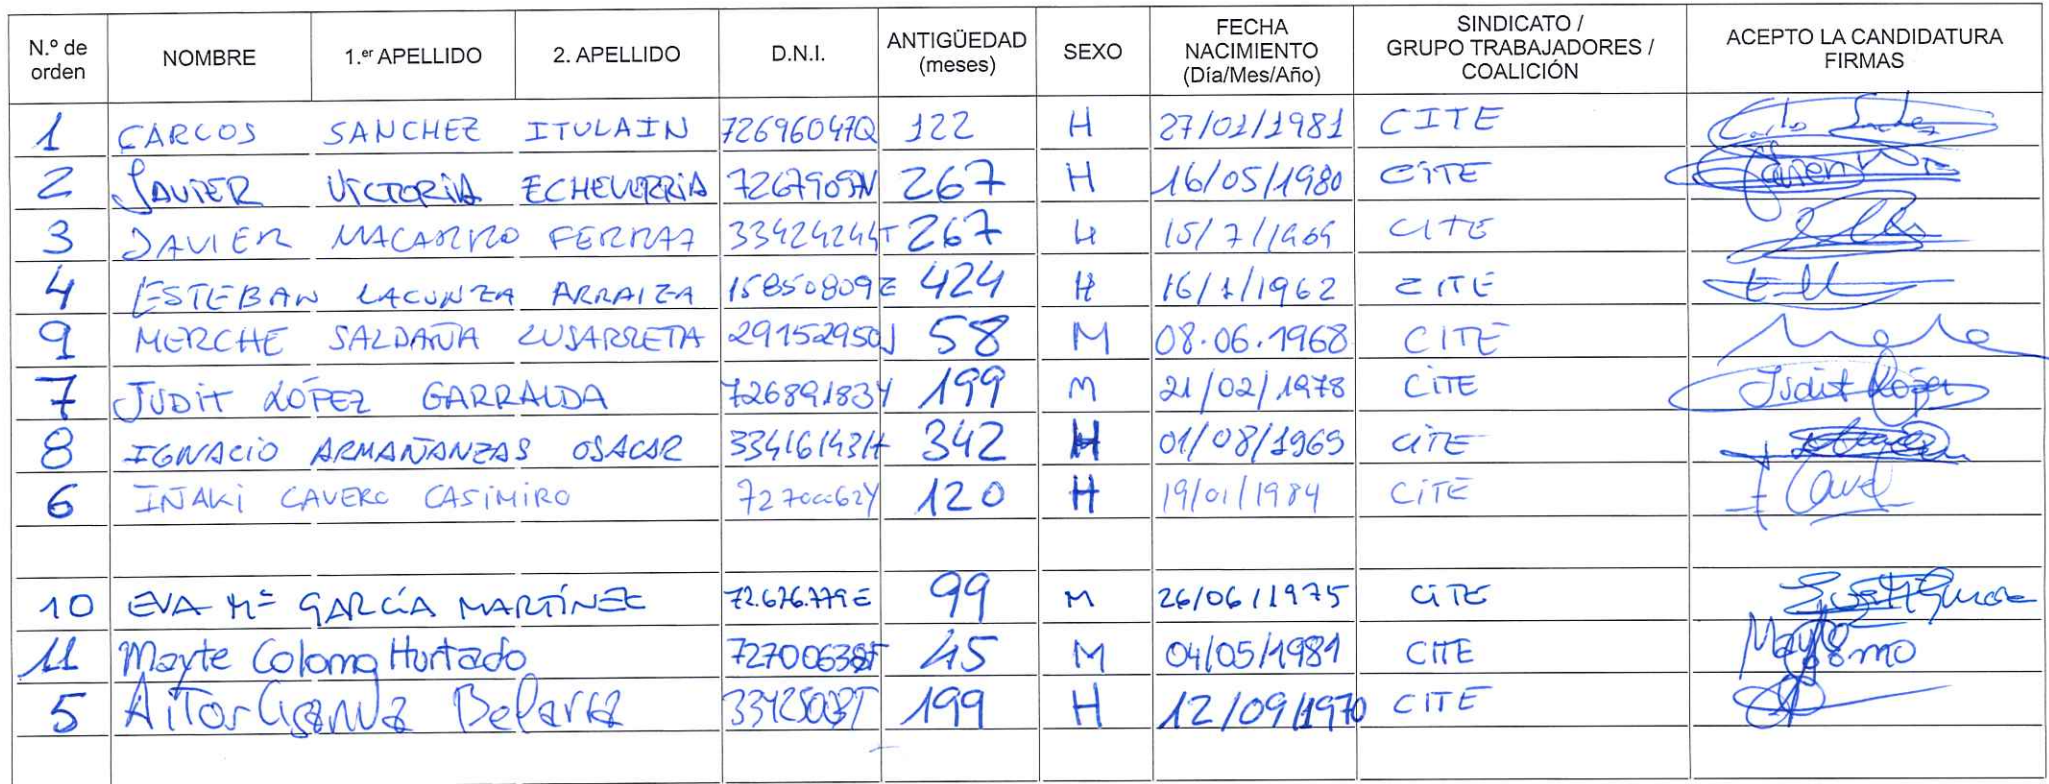 N.º de orden NOMBRE 1.er APELLIDO 2. APELLIDO D.N.I. ANTIGÜEDAD (meses) SEXO FECHA NACIMIENTO (Día/Mes/Año) SINDICATO / GRUPO TRABAJADORES / COALICIÓN ACEPTO LA CANDIDATURA FIRMAS
1 CARLOS SANCHEZ ITULAIN 72696047Q 122 H 27/01/1981 CITE
2 JAVIER VICTORIA ECHEVERRIA 267 H 16/05/1980 CITE
3 JAVIER MACARRO FERRAZ 33424244T 267 H 15/7/1969 CITE
4 ESTEBAN LACUNZA ARRAIZA 15850809Z 424 H 16/1/1962 CITE
9 MERCHE SALDAÑA LUSARRETA 29152950J 58 M 08.06.1968 CITE
7 JUDIT LÓPEZ GARRALDA 72689183Y 199 M 21/02/1978 CITE Judit López
8 IGNACIO ARMAÑANZAS OSACAR 33416143H 342 H 01/08/1969 CITE
6 IÑAKI CAVERO CASIMIRO 120 H 19/01/1984 CITE
10 EVA Mª GARCÍA MARTÍNEZ 72.676.779E 99 M 26/06/1975 CITE
11 Mayte Coloma Hurtado 45 M 04/05/1981 CITE
5 AiTor 199 H 12/09/1970 CITE